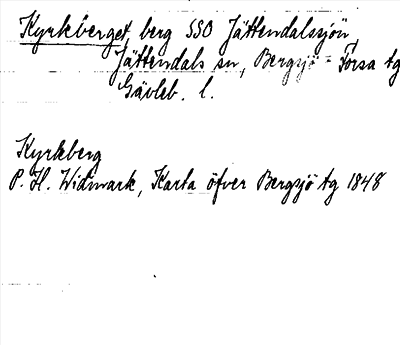 Kyrkberget, berg SSO Jättendalssjön,
Jättendals sn, Bergsjö - Forsa tg
Gävleb. l.
Kyrkberg
P. H. Widmark, Karta öfver Bergsjö tg 1848